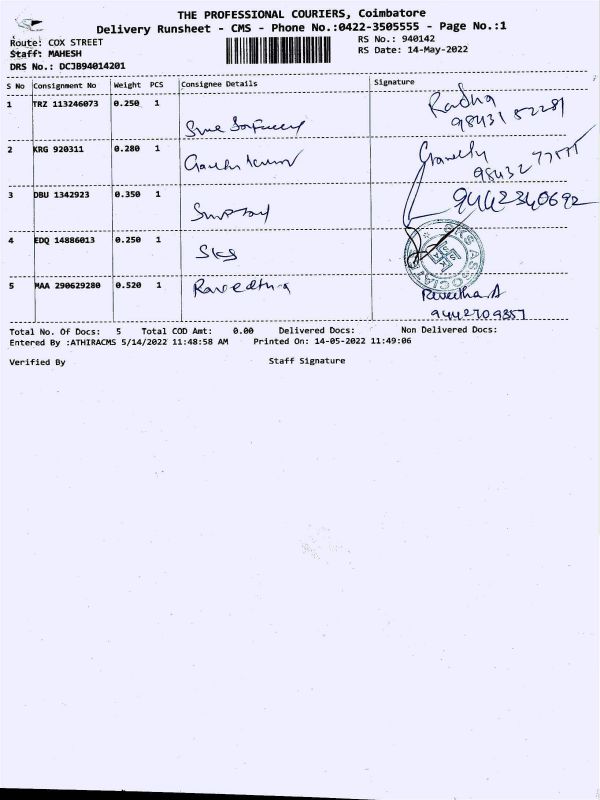 THE PROFESSIONAL COURIERS, Coimbatore
Delivery Runsheet - CMS - Phone No.:0422-3505555 - Page No.:1
Route: COX STREET
RS No.: 940142
Staff: MAHESH
RS Date: 14-May-2022
DRS No.: DCJB94014201
S No Consignment No Weight PCS Consignee Details Signature
1 TRZ 113246073 0.250 1
Radha
2 KRG 920311 0.280 1
3 DBU 1342923 0.350 1
9442340692
4 EDQ 14886013 0.250 1 SKS
5 MAA 290629280 0.520 1
9442709357
Total No. Of Docs: 5 Total COD Amt: 0.00 Delivered Docs: Non Delivered Docs:
Entered By :ATHIRACMS 5/14/2022 11:48:58 AM Printed On: 14-05-2022 11:49:06
Verified By Staff Signature